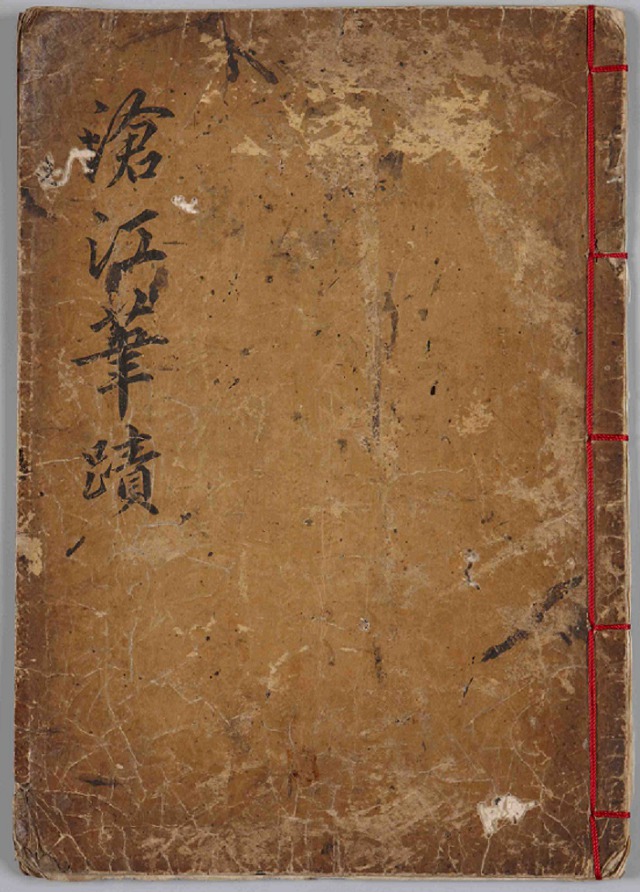 滄江筆蹟